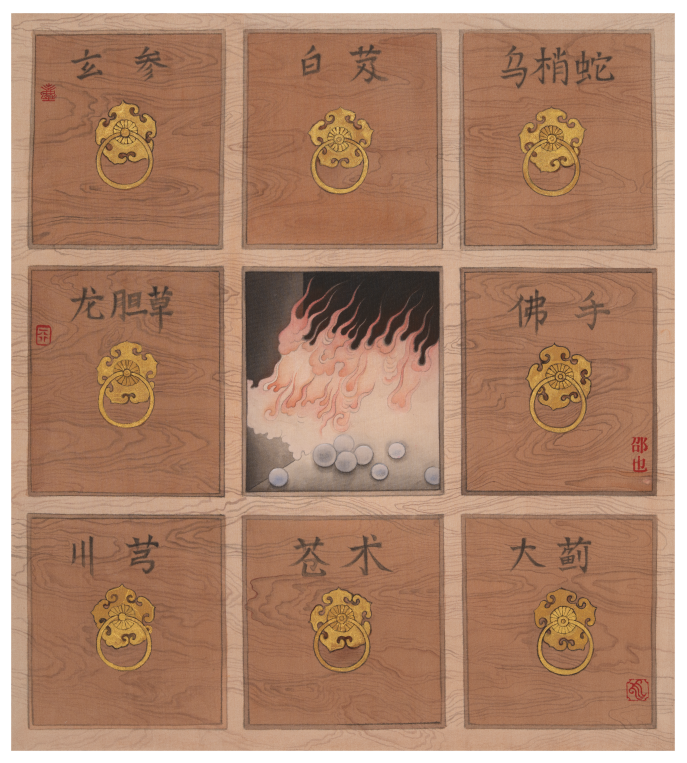 玄参
白芨
乌梢蛇
龙胆草
佛手
邵也
川芎
苍术
大蓟